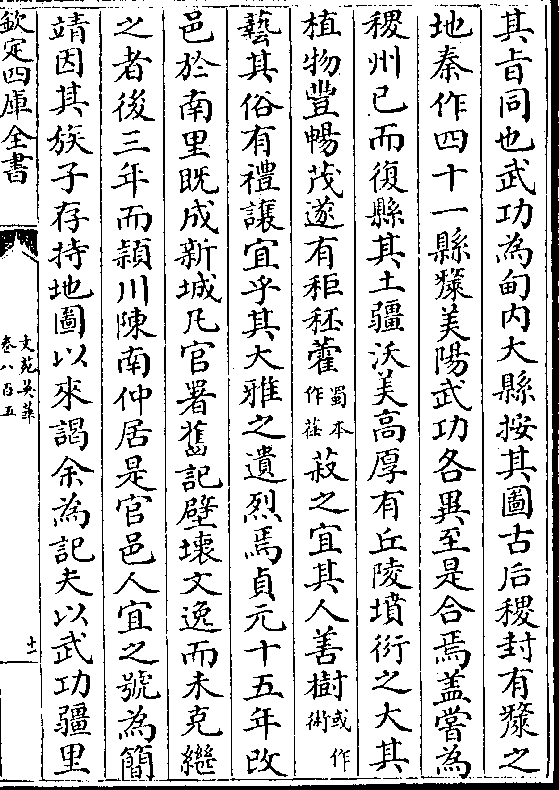 其旨同也武功為甸内大縣按其圖古后稷封有㷅之
地秦作四十一縣㷅美陽武功各異至是合焉盖嘗為
稷州已而復縣其土疆沃美高厚有丘陵墳衍之大其
植物豐暢茂遂有秬秠藿蜀本作荏菽之宜其人善樹或作術
藝其俗有禮讓宜乎其大雅之遺烈焉貞元十五年改
邑於南里既成新城凡官署舊記壁壊文逸而未克繼
之者後三年而頴川陳南仲居是官邑人宜之號為簡
靖因其族子存持地圖以來謁余為記夫以武功疆里
欽定四庫全書
文苑英華
卷八百五
十二